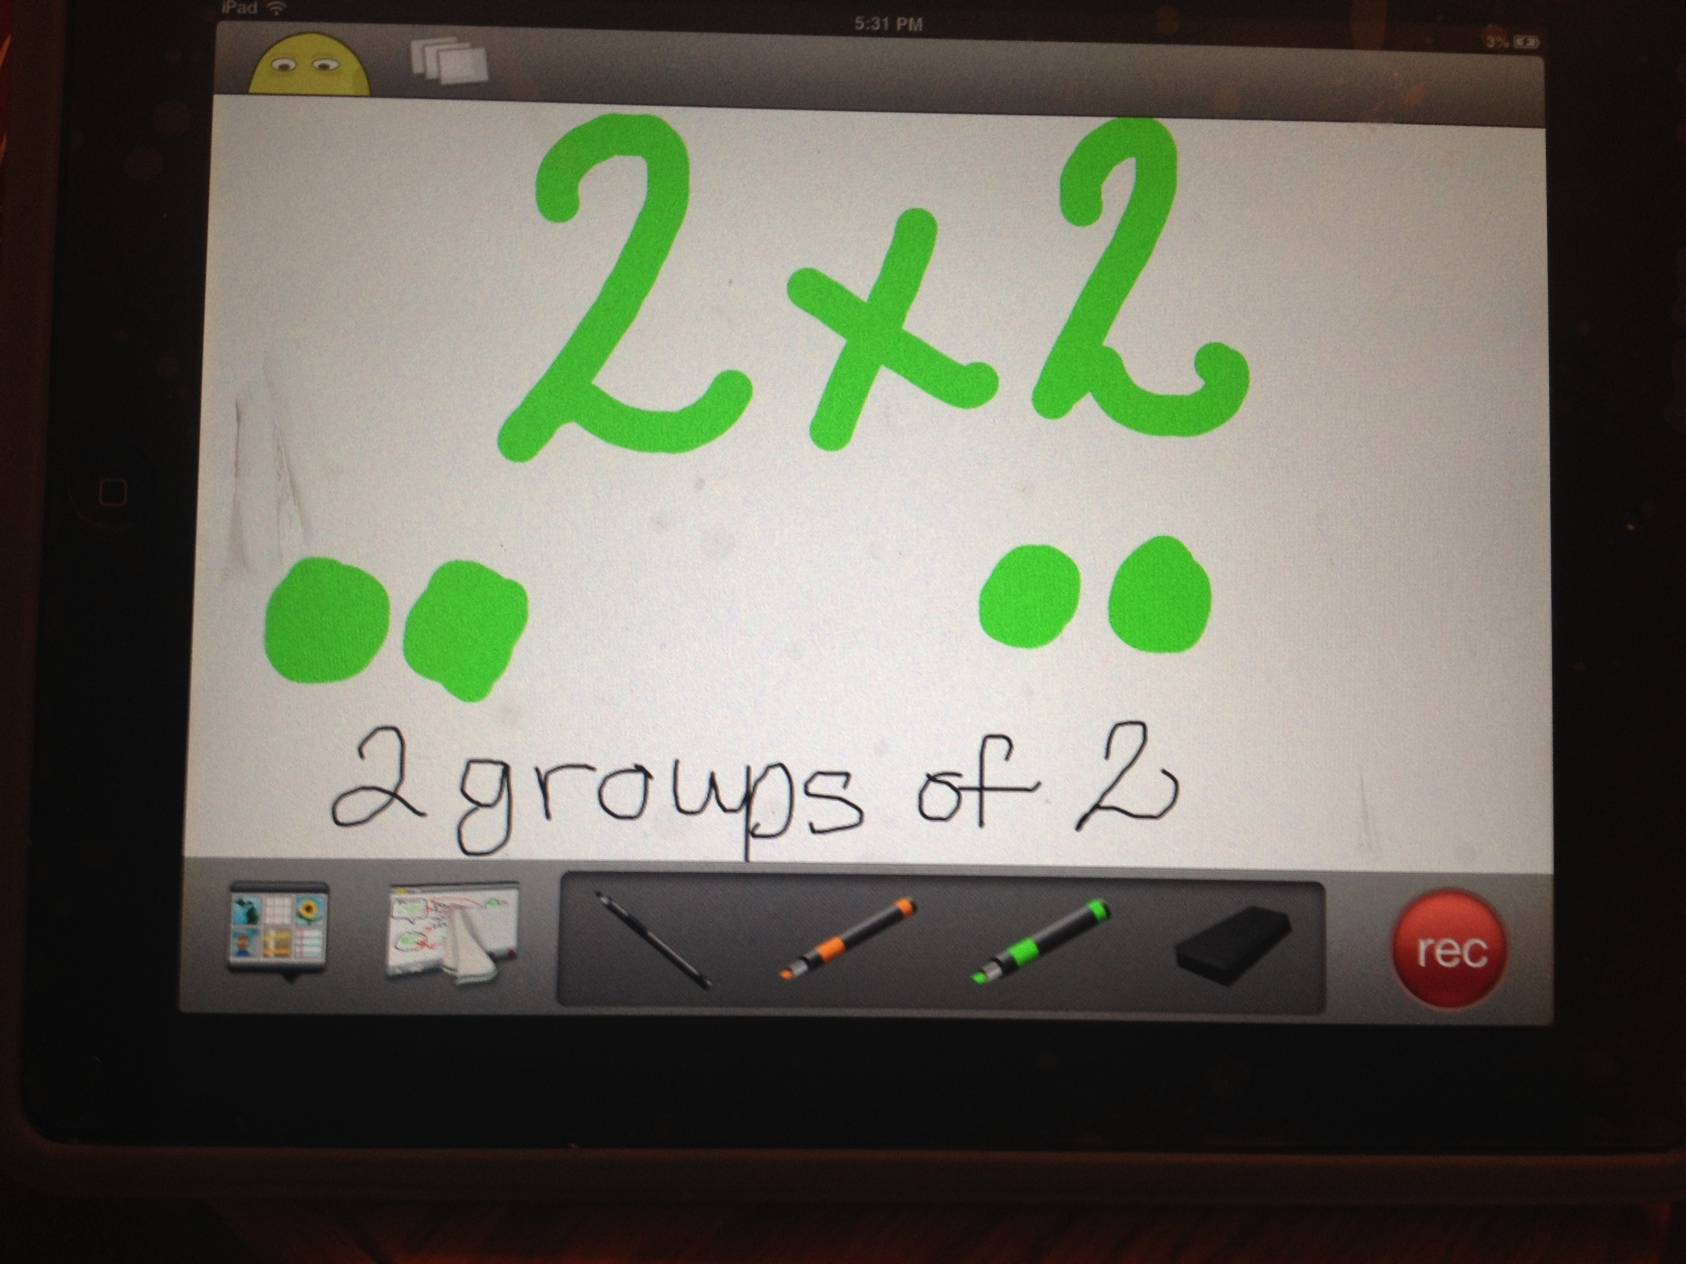 iPad 5:31 PM 3%
2x2
2 groups of 2
rec